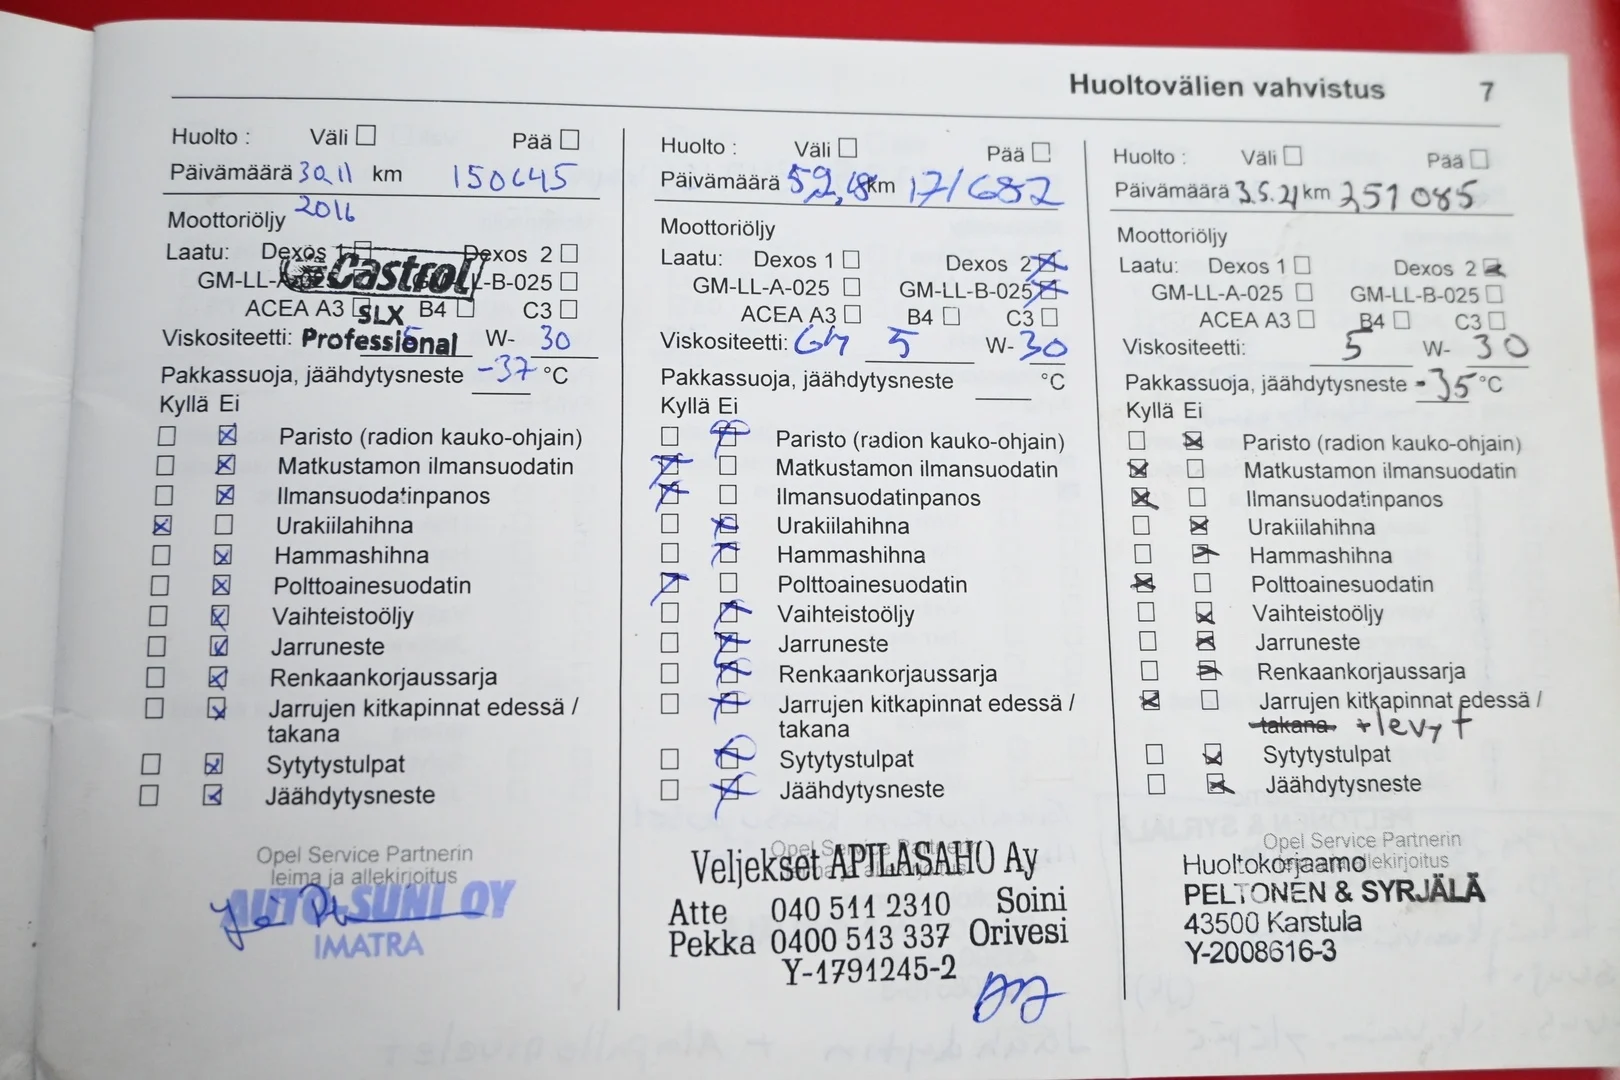 Huoltovälien vahvistus 7
Huolto : Väli Pää
Päivämäärä 30.11 km 150645
2016
Moottoriöljy
Laatu: Dexos 1 Dexos 2
GM-LL-A- L-B-025
Castrol
ACEA A3 B4 C3
SLX
Viskositeetti: Professional 5 W- 30
Pakkassuoja, jäähdytysneste -37 °C
Kyllä Ei
Paristo (radion kauko-ohjain)
Matkustamon ilmansuodatin
Ilmansuodatinpanos
Urakiilahihna
Hammashihna
Polttoainesuodatin
Vaihteistoöljy
Jarruneste
Renkaankorjaussarja
Jarrujen kitkapinnat edessä /
takana
Sytytystulpat
Jäähdytysneste
Opel Service Partnerin
leima ja allekirjoitus
AUTO-SUNI OY
IMATRA
Huolto : Väli Pää
Päivämäärä 5.9.18 km 171682
Moottoriöljy
Laatu: Dexos 1 Dexos 2
GM-LL-A-025 GM-LL-B-025
ACEA A3 B4 C3
Viskositeetti: GM 5 W- 30
Pakkassuoja, jäähdytysneste °C
Kyllä Ei
Paristo (radion kauko-ohjain)
Matkustamon ilmansuodatin
Ilmansuodatinpanos
Urakiilahihna
Hammashihna
Polttoainesuodatin
Vaihteistoöljy
Jarruneste
Renkaankorjaussarja
Jarrujen kitkapinnat edessä /
takana
Sytytystulpat
Jäähdytysneste
Opel Service Partnerin
leima ja allekirjoitus
Veljekset APILASAHO Ay
Atte 040 511 2310 Soini
Pekka 0400 513 337 Orivesi
Y-1791245-2
Huolto : Väli Pää
Päivämäärä 3.5.21 km 251085
Moottoriöljy
Laatu: Dexos 1 Dexos 2
GM-LL-A-025 GM-LL-B-025
ACEA A3 B4 C3
Viskositeetti: 5 W- 30
Pakkassuoja, jäähdytysneste -35 °C
Kyllä Ei
Paristo (radion kauko-ohjain)
Matkustamon ilmansuodatin
Ilmansuodatinpanos
Urakiilahihna
Hammashihna
Polttoainesuodatin
Vaihteistoöljy
Jarruneste
Renkaankorjaussarja
Jarrujen kitkapinnat edessä /
takana +levyt
Sytytystulpat
Jäähdytysneste
Opel Service Partnerin
leima ja allekirjoitus
Huoltokorjaamo
PELTONEN & SYRJÄLÄ
43500 Karstula
Y-2008616-3